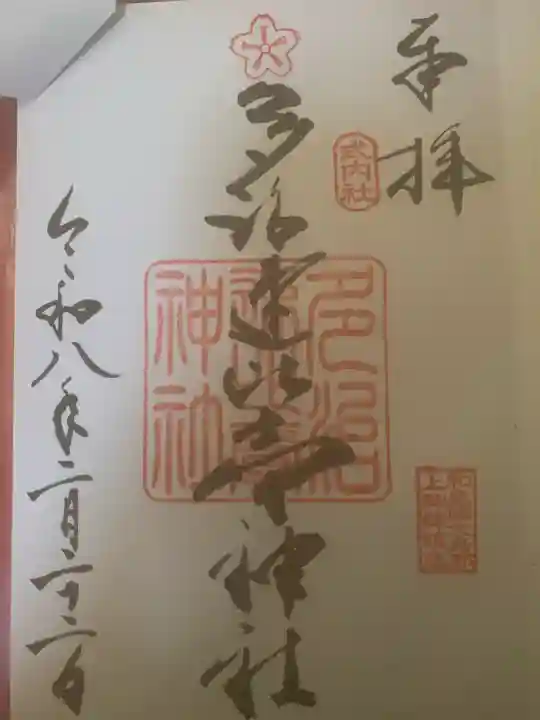 奉拝
式内社
多治速比売神社
多治速比売神社
令和八年二月二十二日